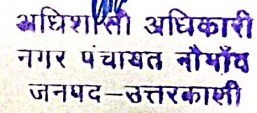 अधिशासी अधिकारी
नगर पंचायत नौगाँव
जनपद–उत्तरकाशी